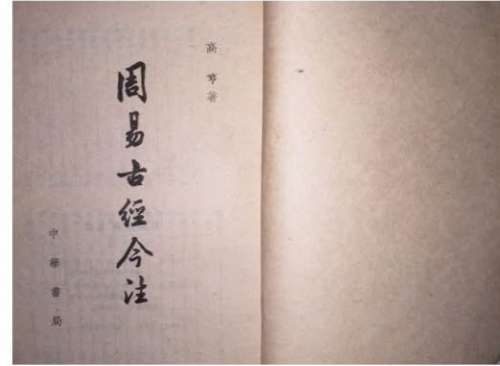 高亨著
周易古經今注
中華書局